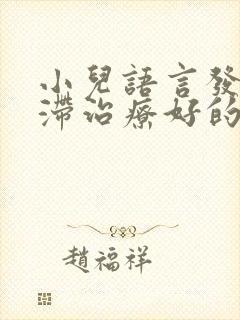 小兒語言發
滯治療好的
趙福祥